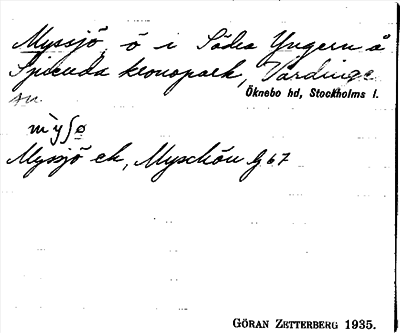 Myssjö, ö i Södra Yngern å
kronopark, Vårdinge
sn.
Öknebo hd, Stockholms l.
mỳʃø
Myssjö ek, Myschöu G 67
GÖRAN ZETTERBERG 1935.